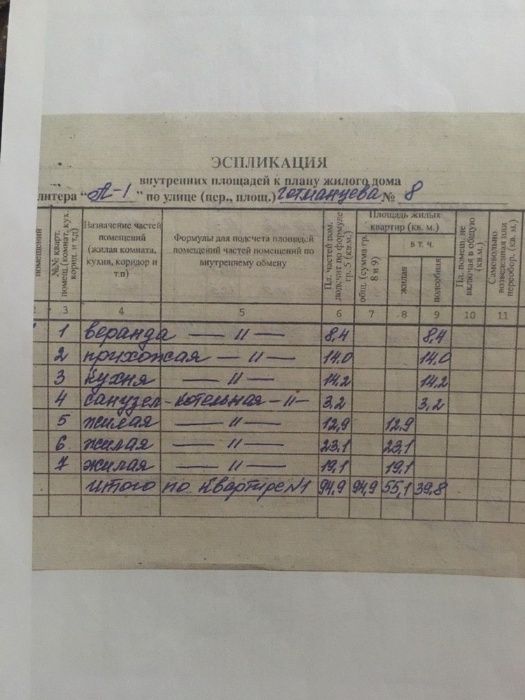 ЭСПЛИКАЦИЯ
внутренних площадей к плану жилого дома
литера "А-1" по улице (пер., площ.) Готманцева № 8
помещений
№№ кварт. помещ. (комнат, кух. корид. и т.д)
Назначение частей помещений (жилая комната, кухня, коридор и т.п)
Формулы для подсчета площадей помещений частей помещений по внутреннему обмену
Пл. частей пом. подсчит. по формуле гр. 5 (кв.м.)
Площадь жилых квартир (кв. м.)
общ. (сумма гр. 8 и 9)
в т. ч.
жилая
подсобная
Пл. помещ. не включая в общую (кв.м.)
Самовольно возведенная или переобор. (кв. м.)
2 3 4 5 6 7 8 9 10 11
1 веранда — " — 8,4 8,4
2 прихожая — " — 14,0 14,0
3 кухня — " — 14,2 14,2
4 санузел-котельная — " — 3,2 3,2
5 жилая — " — 12,9 12,9
6 жилая — " — 23,1 23,1
7 жилая — " — 19,1 19,1
Итого по квартире №1 94,9 94,9 55,1 39,8